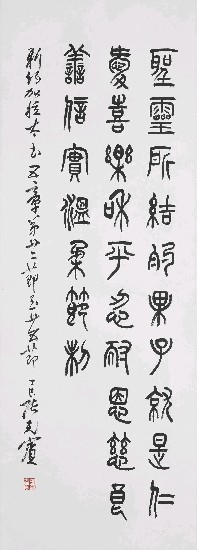 聖靈所結的果子就是仁
愛喜樂和平忍耐恩慈良
善信實溫柔節制
新約加拉太書五章第廿二節至廿三節